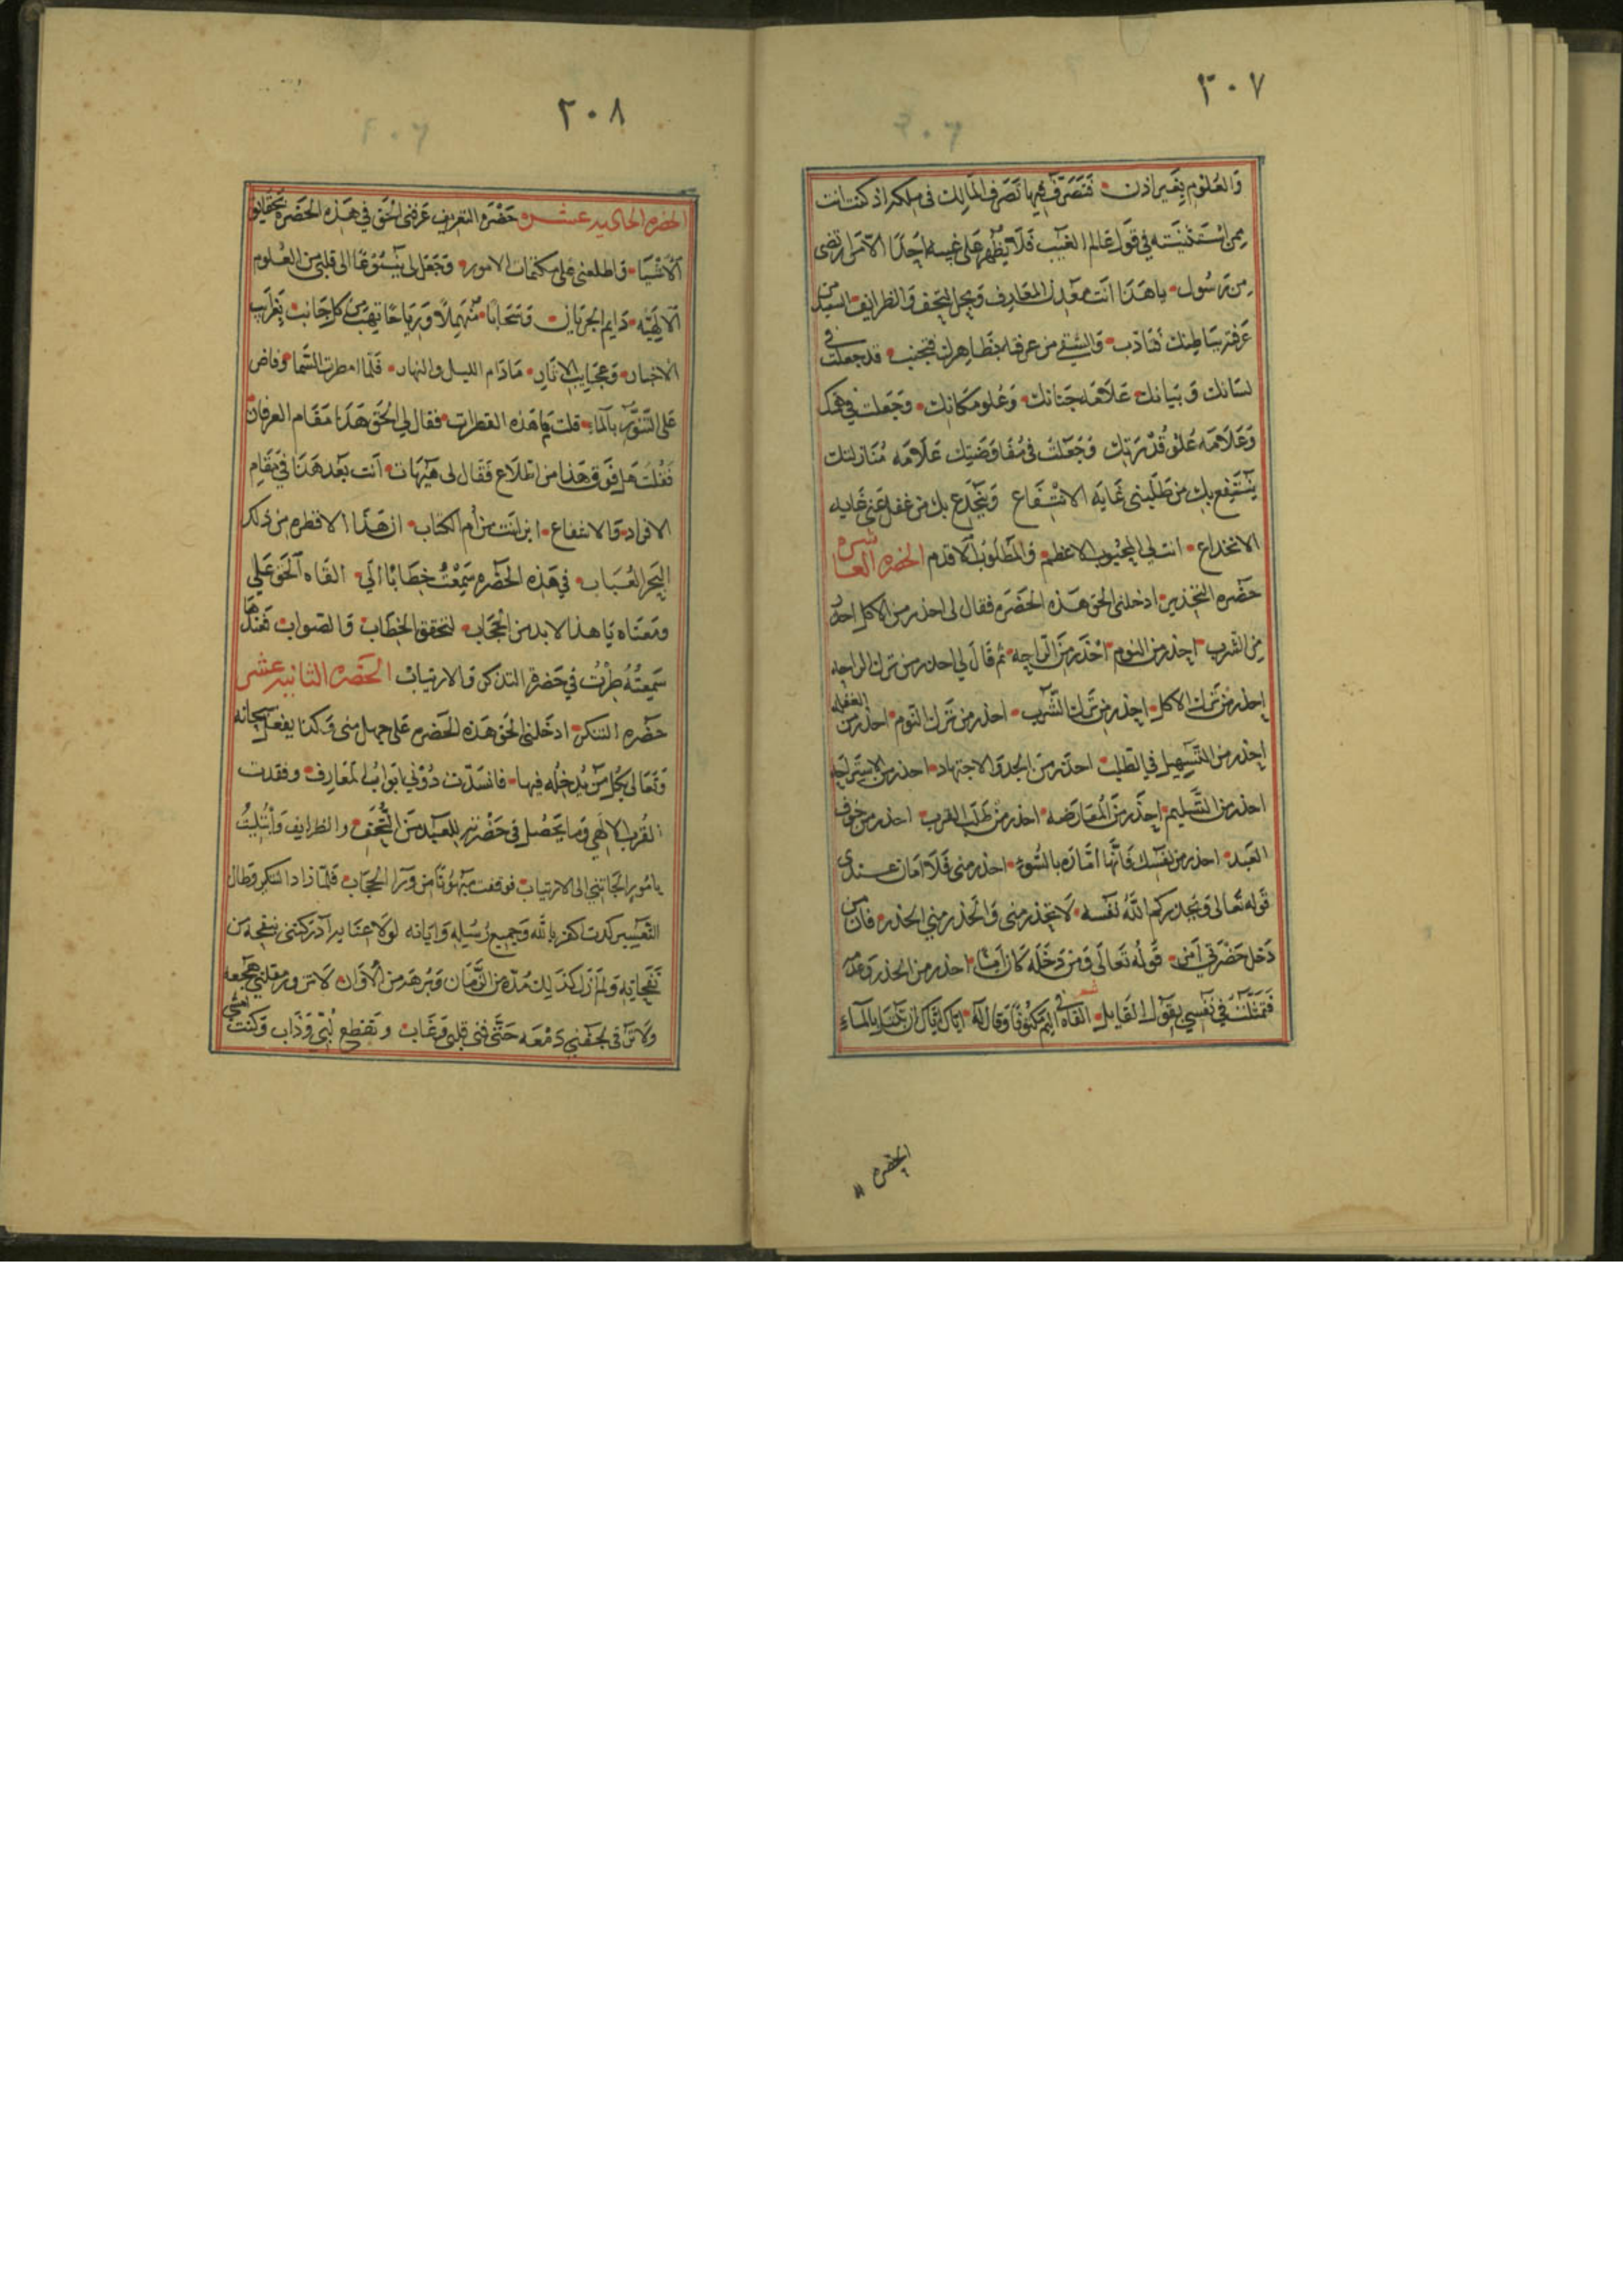 ٣٠٧
والعلوم بغير اذن فتصرف فيها تصرف المالك فى ملكه اذ كنت انت
ممن استثنيته فى قول عالم الغيب فلا يظهر على غيبه احدا الا من ارتضى
من رسول يا هذا انت معدن المعارف وبحر التحف والظرايف السعيد من
عرفته بباطنك فتادب والشقي من عرفته بظاهرك فتجنب قد جعلت فى
لسانك وبيانك علامة جنانك وعلو مكانك وجعلت فى فهمك
وعلامه علو قدرتك وجعلت فى مفاوضتك علامه منازلتك
ينتفع بك من طلبنى غايه الانتفاع وينخدع بك من غفل عنى غايه
الانخداع انت لي المحبوب الاعظم والمطلوب الاقدم الحضره العاشره
حضره التحذير ادخلنى الحق هذه الحضره فقال لى احذر من الاكل احذر
من الشرب احذر من النوم احذر من الراحه ثم قال لي احذر من ترك الراحه
احذر من ترك الاكل احذر من ترك الشرب احذر من ترك النوم احذر من الغفله
احذر من التسهيل في الطلب احذر من الجد والاجتهاد احذر من الاستراحه
احذر من التسليم احذر من المعارضه احذر من طلب القرب احذر من خوف
العبد احذر من نفسك فانها امارة بالسوء احذر منى فلا امان عندى
قوله تعالى ويحذركم الله نفسه لا تحذر منى والحذر مني الحذر فان من
دخل حضرتي امن قوله تعالى ومن دخله كان امنا احذر من الحذر وعد
فتمثلت في نفسي بقول القايل شعر القاه فى اليم مكتوفا وقال له اياك اياك ان تبتل بالماء
الحضره ١١
٣٠٨
الحضره الحاديه عشره حضرة التعريف عرفنى الحق في هذه الحضرة بحقايق
الاشيا واطلعنى على مكتمات الامور وجعل لى ينبوعا الى قلبي من العلوم
الالهيه دايم الجريان وسحابا منهملا ورياحا تهب من كل جانب بغرايب
الاخبار وعجايب الاثار مادام الليل والنهار فلما امطرت السما وفاض
على التنور بالماء قلت ما هذه القطرات فقال لي الحق هذا مقام العرفان
فقلت هل فوق هذا من اطلاع فقال لى هيهات انت بعد هذا في مقام
الافراد والاشفاع اين انت من ام الكتاب ان هذا الا قطره من ذلك
البحر العباب في هذه الحضره سمعت خطابا الي القاه الحق علي
ومعناه يا هذا لابد من الحجاب لتحقق الخطاب والصواب فعندما
سمعته طرت في حضرة التذكر والارتياب الحضره الثانيه عشر
حضره التنكر ادخلنى الحق هذه الحضره على جهل منى وكذا يفعل سبحانه
وتعالى بكل من يدخله فيها فانسدت دوني ابواب المعارف وفقدت
القرب الالهي وما يحصل فى حضرته للعبد من التحف والظرايف وابتليت
بامور الجاتنى الى الارتياب فوقفت مبهوتا من ورا الحجاب فلما زاد التنكر وطال
التعسير كدت اكفر بالله وجميع رسله واياته لولا عنايه ادركتنى بنفحة من
نفحاته ولم ازل كذلك مدة من الزمان وبرهة من الاوان لا تزور مقلتي هجعة
ولا ترقى لجفني دمعه حتى فنى قلبى وغاب وتقطع لبي وذاب وكنت امشي